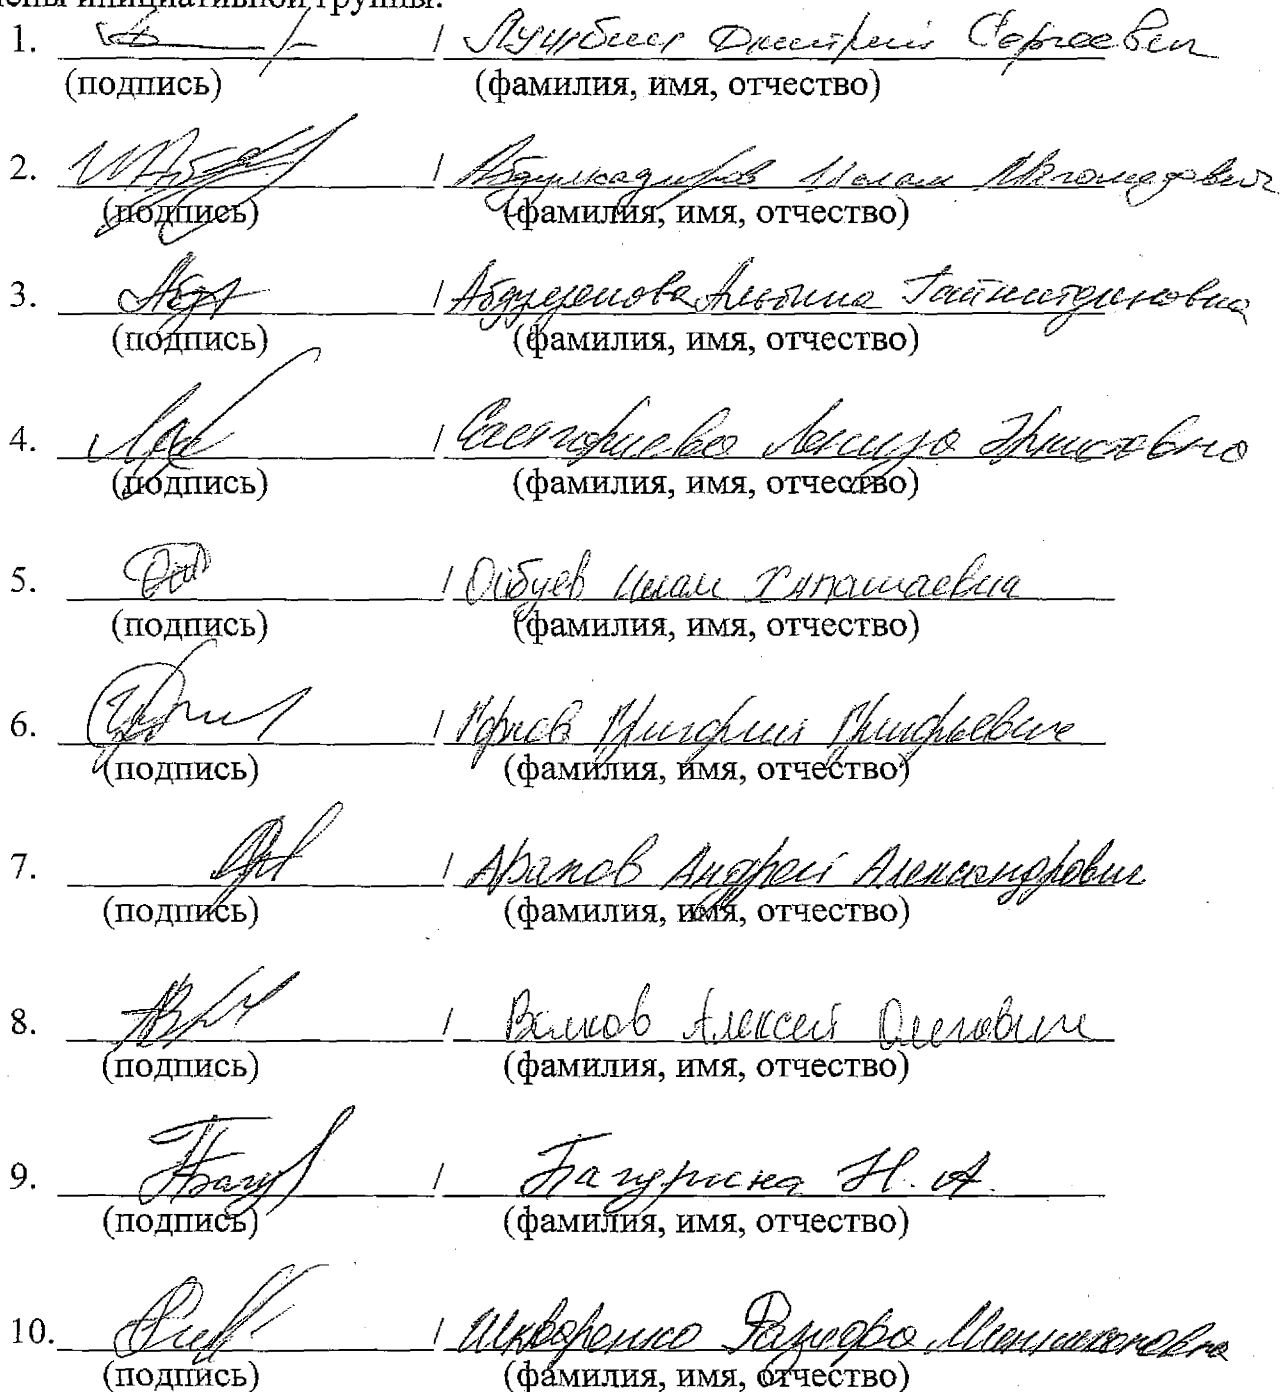 члены инициативной группы:
1. / Лушбин Дмитрий Сергеевич
(подпись) (фамилия, имя, отчество)
2. / Абдулкадыров Ислам Магомедович
(подпись) (фамилия, имя, отчество)
3. / Альбина Гайнитдиновна
(подпись) (фамилия, имя, отчество)
4. /
(подпись) (фамилия, имя, отчество)
5. / Ойбуев Ислам
(подпись) (фамилия, имя, отчество)
6. / Григорий Григорьевич
(подпись) (фамилия, имя, отчество)
7. / Арапов Андрей Александрович
(подпись) (фамилия, имя, отчество)
8. / Волков Алексей Олегович
(подпись) (фамилия, имя, отчество)
9. / Багурина Н. А.
(подпись) (фамилия, имя, отчество)
10. / Шкваренко
(подпись) (фамилия, имя, отчество)